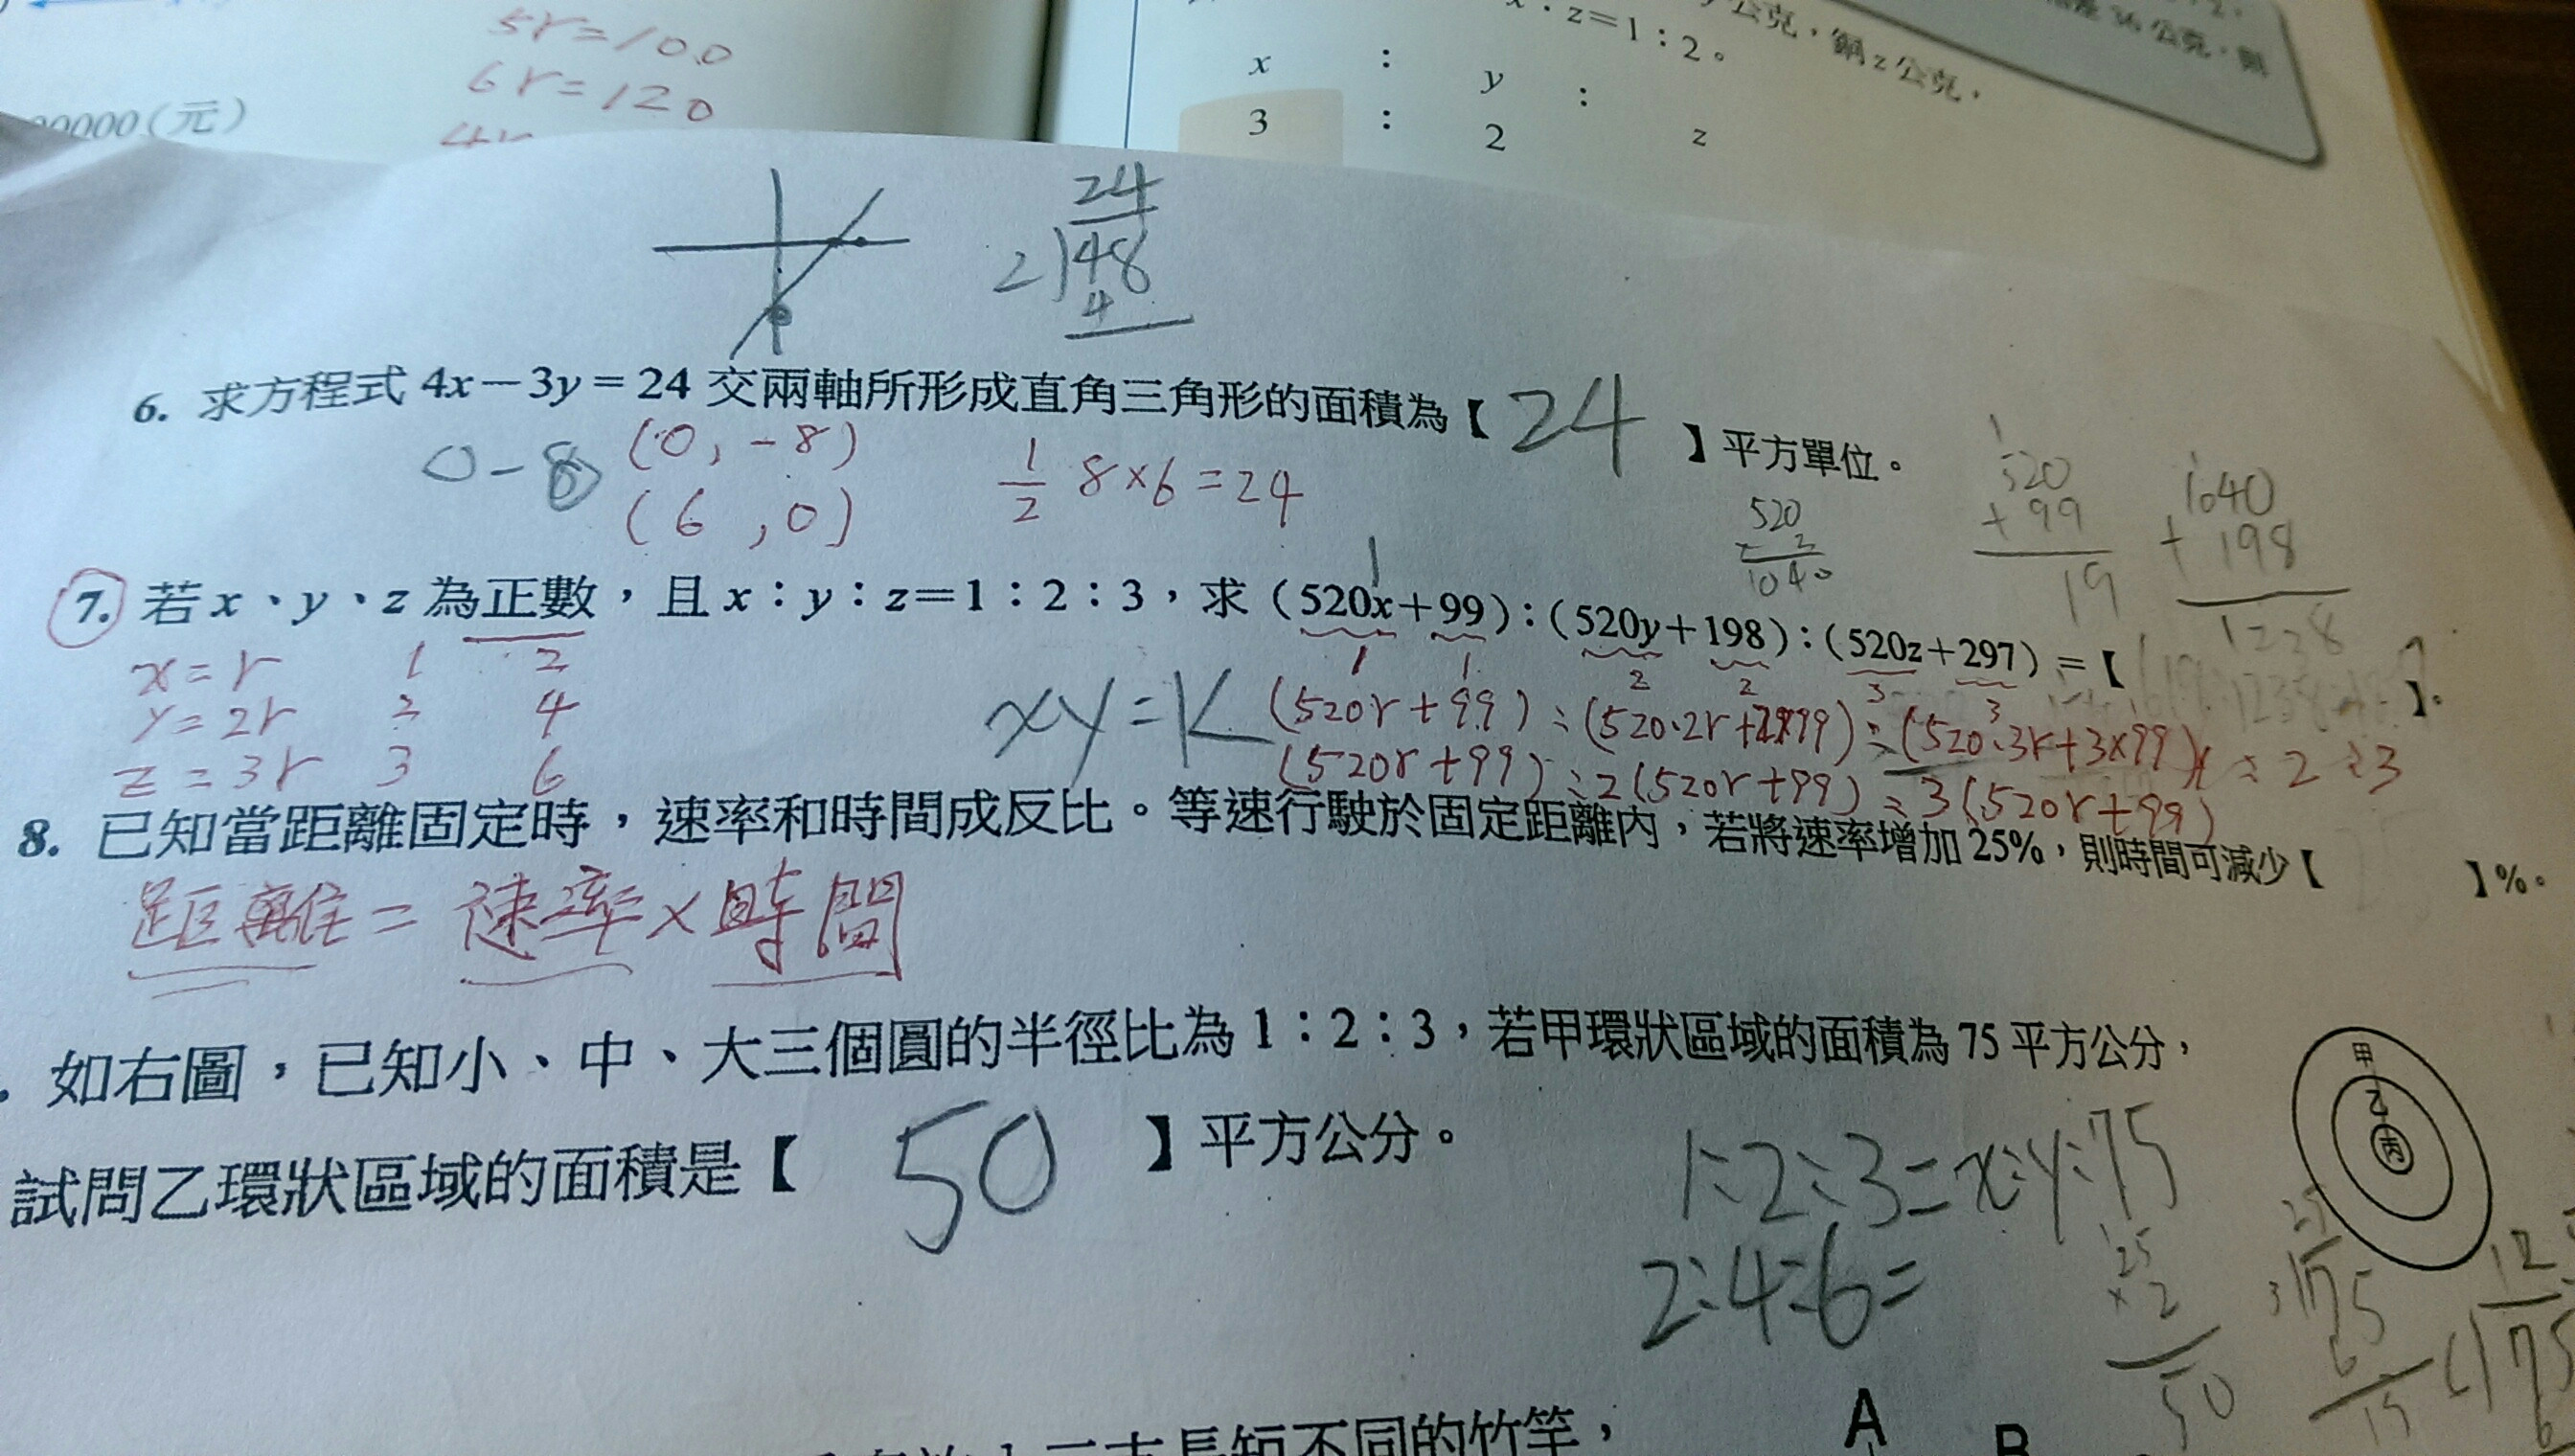 5r=100
6r=120
00000(元)
z=1:2。
公克,銅z公克,
36公克,
x : y : z
3 : 2
24
2)48
4
6. 求方程式 4x-3y=24 交兩軸所形成直角三角形的面積為【 24 】平方單位。
0-8 (0, -8)
(6, 0)
1/2 8×6=24
520
2
1040
520
+99
19
1040
+198
1238
7. 若x、y、z為正數,且x:y:z=1:2:3,求(520x+99):(520y+198):(520z+297)=【 】。
1 1 2 2 3 3
x=r 1 2
y=2r 2 4
z=3r 3 6
xy=K
(520r+99):(520·2r+2×99):(520·3r+3×99)
(520r+99):2(520r+99):3(520r+99)
1:2:3
8. 已知當距離固定時,速率和時間成反比。等速行駛於固定距離內,若將速率增加25%,則時間可減少【 】%。
距離=速率×時間
. 如右圖,已知小、中、大三個圓的半徑比為1:2:3,若甲環狀區域的面積為75平方公分,
試問乙環狀區域的面積是【 50 】平方公分。
甲
乙
丙
1:2:3=x:y:75
2:4:6=
25
×2
50
25
3)75
6
15
12
6)75
6
長短不同的竹竿,
A
B